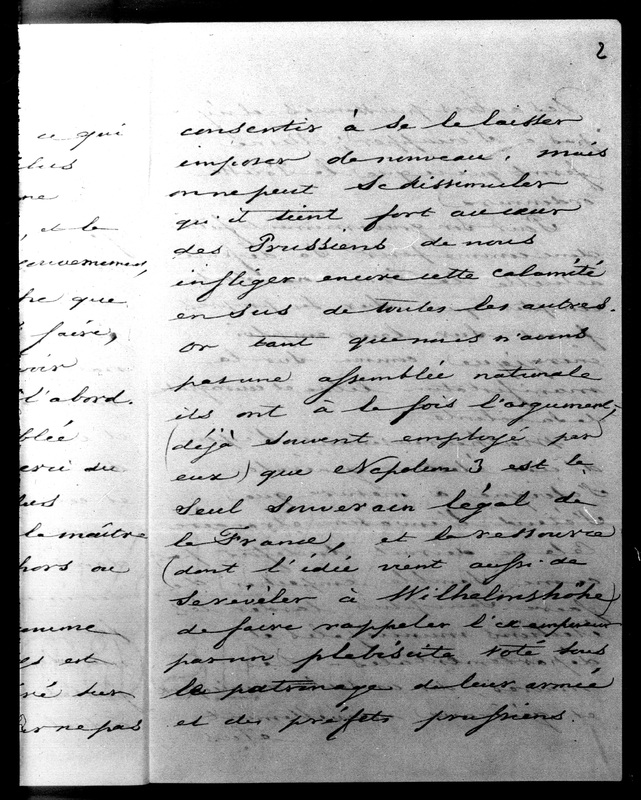 2
ce qui
et le
que
faire,
d'abord.
le maître
hors ou
est
sur
ne pas
consentir à se le laisser
imposer de nouveau. mais
on ne peut se dissimuler
qu'il tient fort au cœur
des Prussiens de nous
infliger encore cette calamité
en sus de toutes les autres.
or tant que nous n'avons
pas une assemblée nationale
ils ont à la fois l'argument,
(déjà souvent employé par
eux) que Napoléon 3 est le
seul souverain légal de
la France, et la ressource
(dont l'idée vient aussi de
se révéler à Wilhelmshöhe)
de faire rappeler l'ex empereur
par un plébiscite voté sous
le patronage de leur armée
et des préfets prussiens.